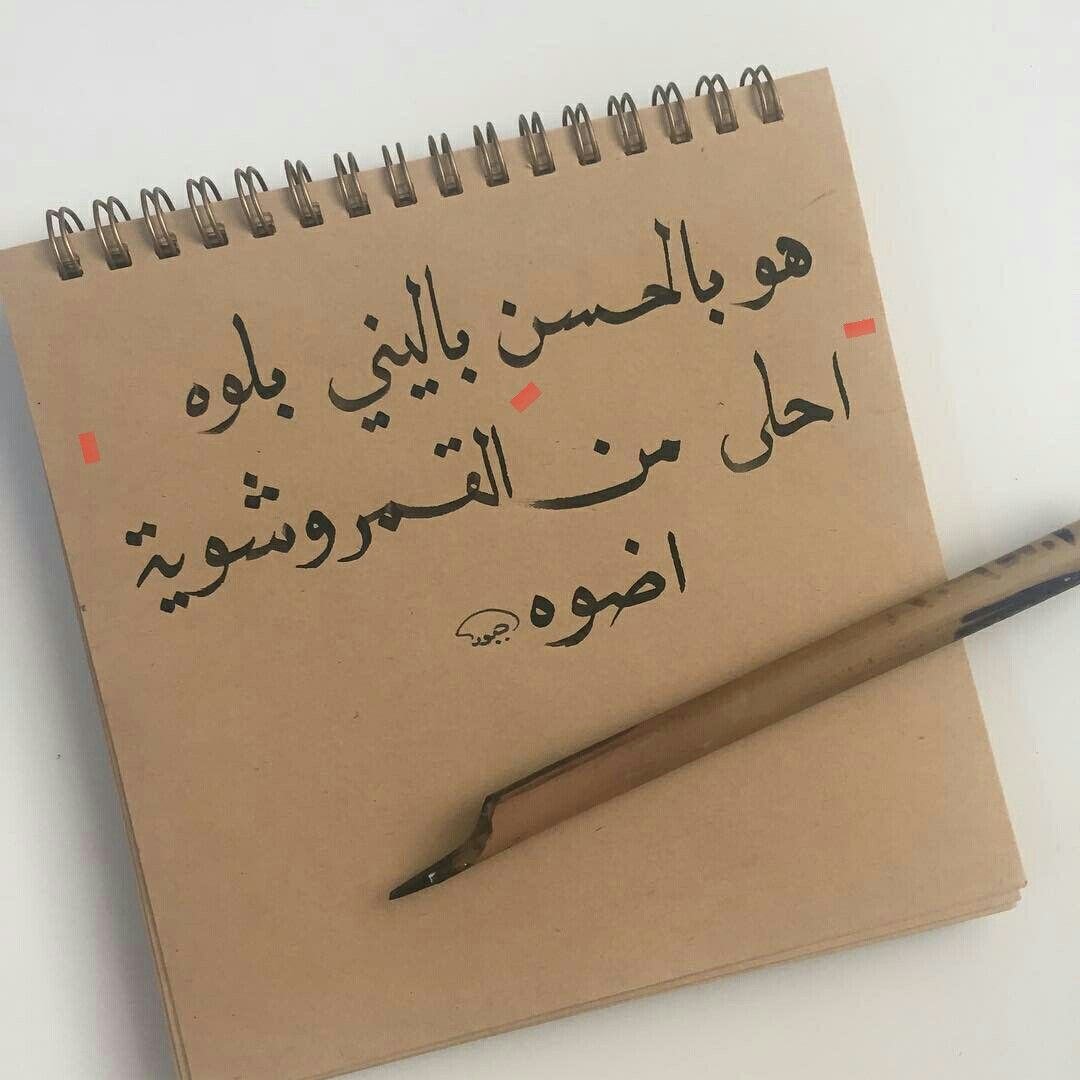 هو بالحسن باليني بلوه
احلى من القمر وشوية
اضوه